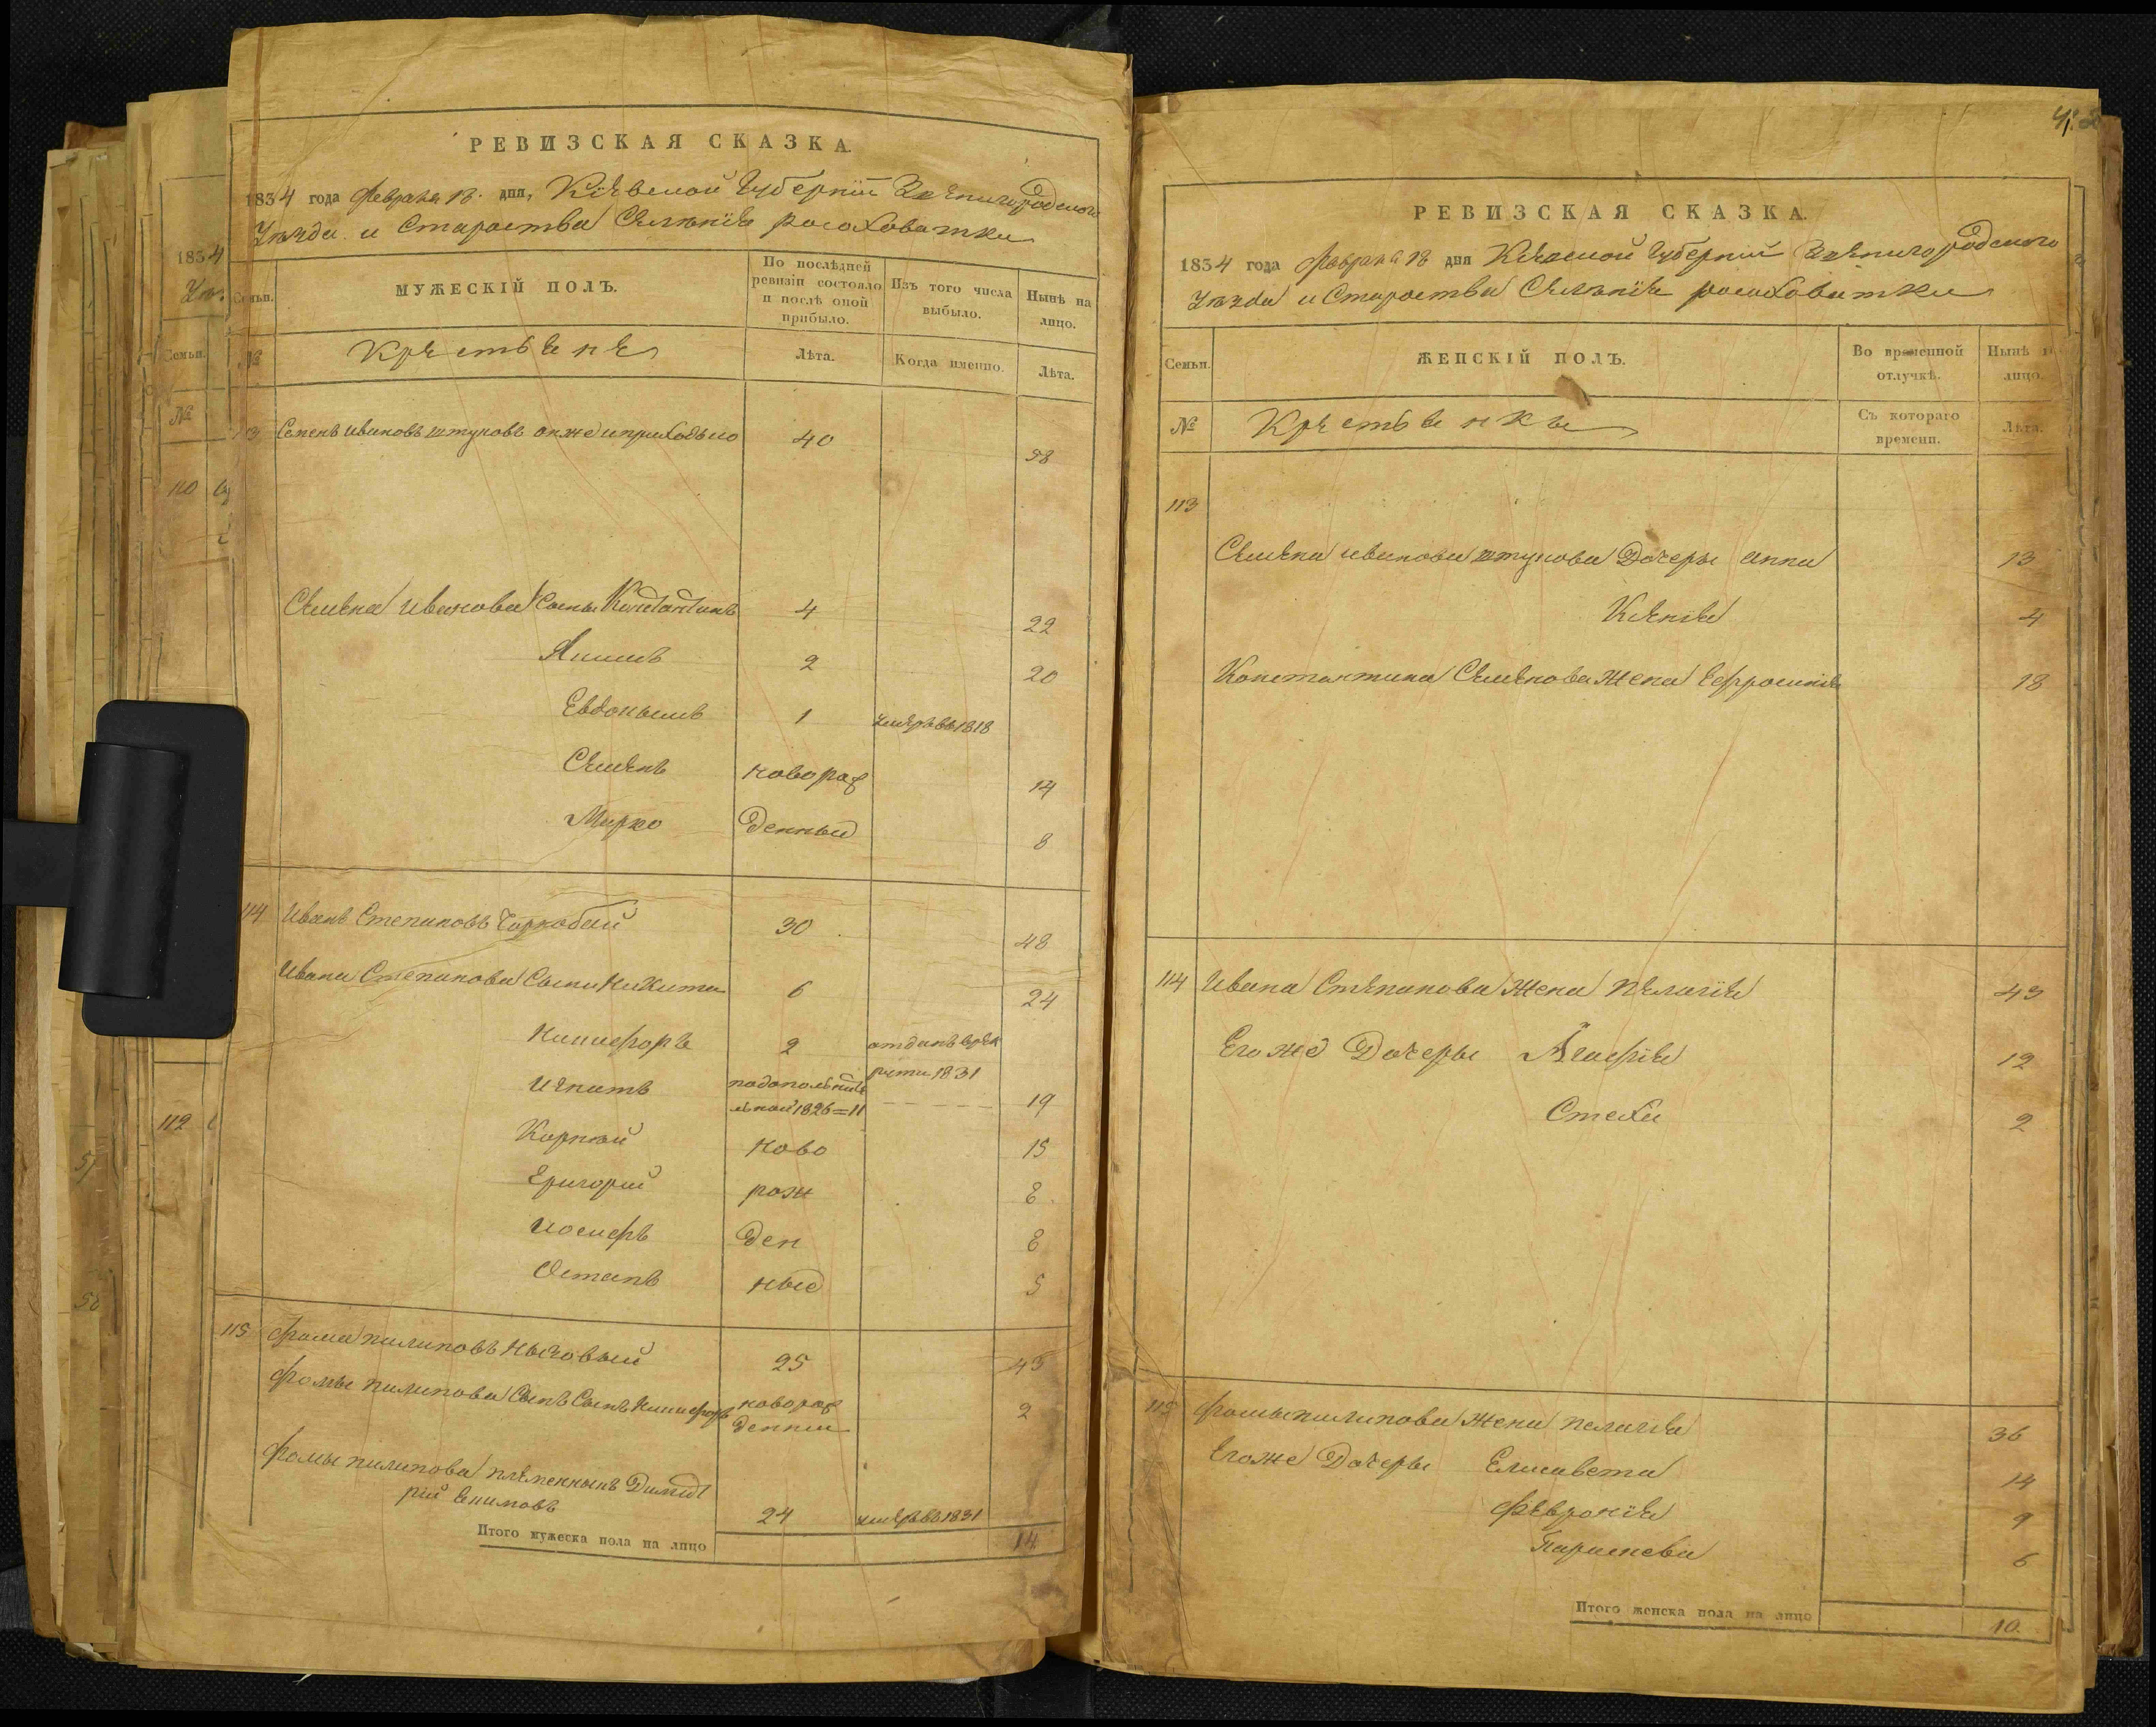 РЕВИЗСКАЯ СКАЗКА.
1834 года февраля 18. дня, Кіевской Губерніи Звенигородского
Уѣзда и Староства Селенія росоховатки
Семьи.
МУЖЕСКІЙ ПОЛЪ.
По послѣдней ревизіи состояло и послѣ оной прибыло.
Изъ того числа выбыло.
Нынѣ на лицо.
№
Крестьяне
Лѣта.
Когда именно.
Лѣта.
Семенъ ивановъ штуновъ онже и приходько 40 58
Семена иванова сыны Константинъ 4 22
Якимъ 2 20
Евдокимъ 1 умеръ въ 1818
Семенъ новорож 14
Марко денные 8
114 Иванъ Степановъ Чорнобай 30 48
Ивана Степанова Сыны Никита 6 24
Никифоръ 2 отданъ врек
руты 1831
Игнатъ 19
1826=11
Корнѣй ново 15
Григорій рож 8
иосифъ ден 8
Остапъ ные 5
115 фома пилиповъ 25 43
фомы пилипова Сынъ Сынъ Никифоръ новорож 2
денный
фомы пилипова племенникъ Димит
рій 24 умеръ въ 1831
Итого мужеска пола на лицо 14
1834
Семьи.
№
110
112
51
РЕВИЗСКАЯ СКАЗКА.
1834 года февраля 18 дня Кіевской Губерніи Звенигородского
Уѣзда и Староства Селенія росоховатки
Семьи.
ЖЕНСКІЙ ПОЛЪ.
Во временной отлучкѣ.
Нынѣ на лицо.
№
Крестьянки
Съ котораго времени.
Лѣта.
113
Семена иванова штунова Дочеры анна 13
Ксенія 4
Константина Семенова Жена Ефросинія 18
114 Ивана Степанова Жена Пелагія 43
Егоже Дочеры Агафія 12
Стеха 2
115 фомы пилипова Жена пелагія 36
Егоже Дочеры Елисавета 14
Февронія 9
Параскева 6
Итого женска пола на лицо 10.